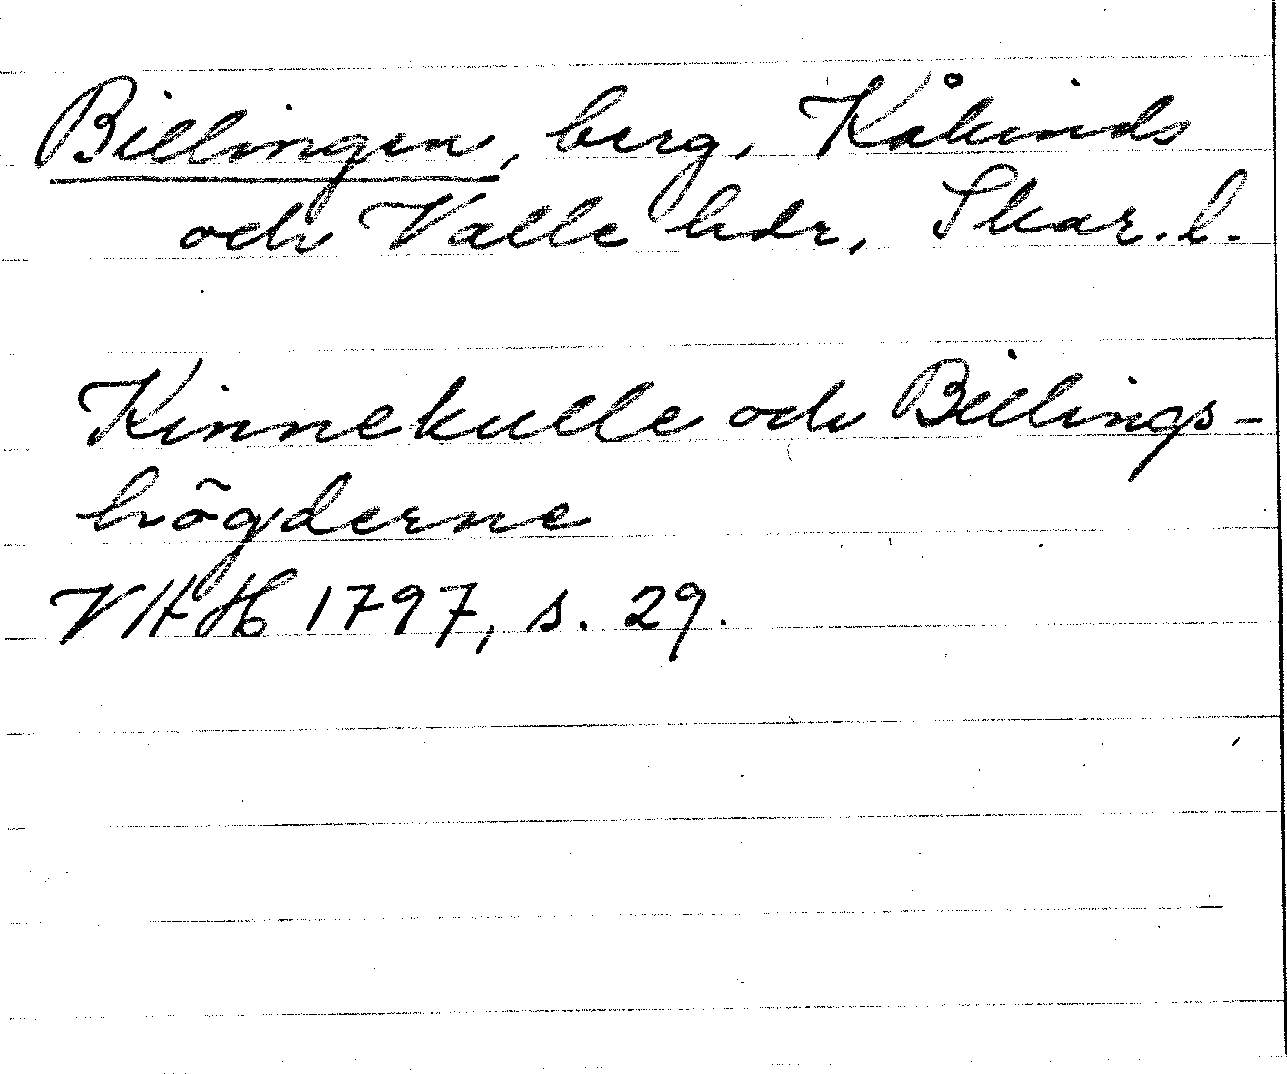 Billingen, berg, Kåkinds
och Valle hdr, Skar. l.
Kinnekulle och Billings-
högderne
VAH 1797, s. 29.